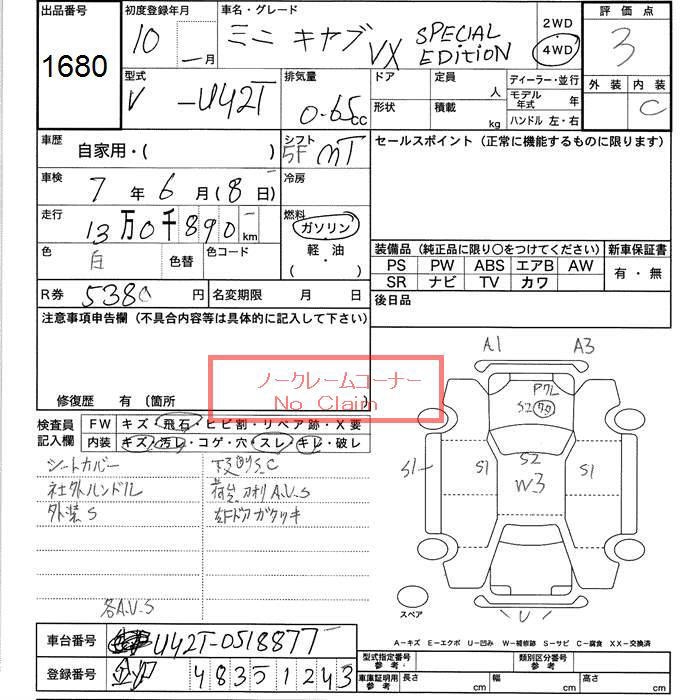 出品番号 初度登録年月 車名・グレード 2WD 評価点
1680 10年 月 ミニキャブ VX SPECIAL EDITION 4WD 3
型式 排気量 ドア 定員 人 ディーラー・並行 外装 内装
V-U42T 0.65cc 形状 積載 kg モデル年式 年 C
ハンドル 左・右
車歴 自家用・( ) シフト 5F MT セールスポイント (正常に機能するものに限ります)
車検 7年6月(8日) 冷房
走行 13万0千890km 燃料 ガソリン
軽・油
( ・ )
色 白 色替 色コード 装備品 (純正品に限り○をつけてください) 新車保証書
PS PW ABS エアB AW 有・無
SR ナビ TV カワ
R券 5380円 名変期限 月 日 後日品
注意事項申告欄 (不具合内容等は具体的に記入して下さい)
ノークレームコーナー
No Claim
修復歴 有 (箇所
検査員記入欄 FW キズ・飛石・ヒビ割・リペア跡・X要
内装 キズ・汚レ・コゲ・穴・スレ・キレ・破レ
シートカバー 下廻りS.C
社外ハンドル 荷台アオリA.U.S
外装S 左Fドアガクツキ
各A.U.S
A1 A3
P7L
S2
S1 S1 S2 S1
W3
U
スペア
A-キズ E-エクボ U-凹み W-補修跡 S-サビ C-腐食 XX-交換済
車台番号 U42T-0518877 型式指定番号 参考 類別区分番号 参考
登録番号 48351243 車庫証明用 参考 長さ cm 幅 cm 高さ cm